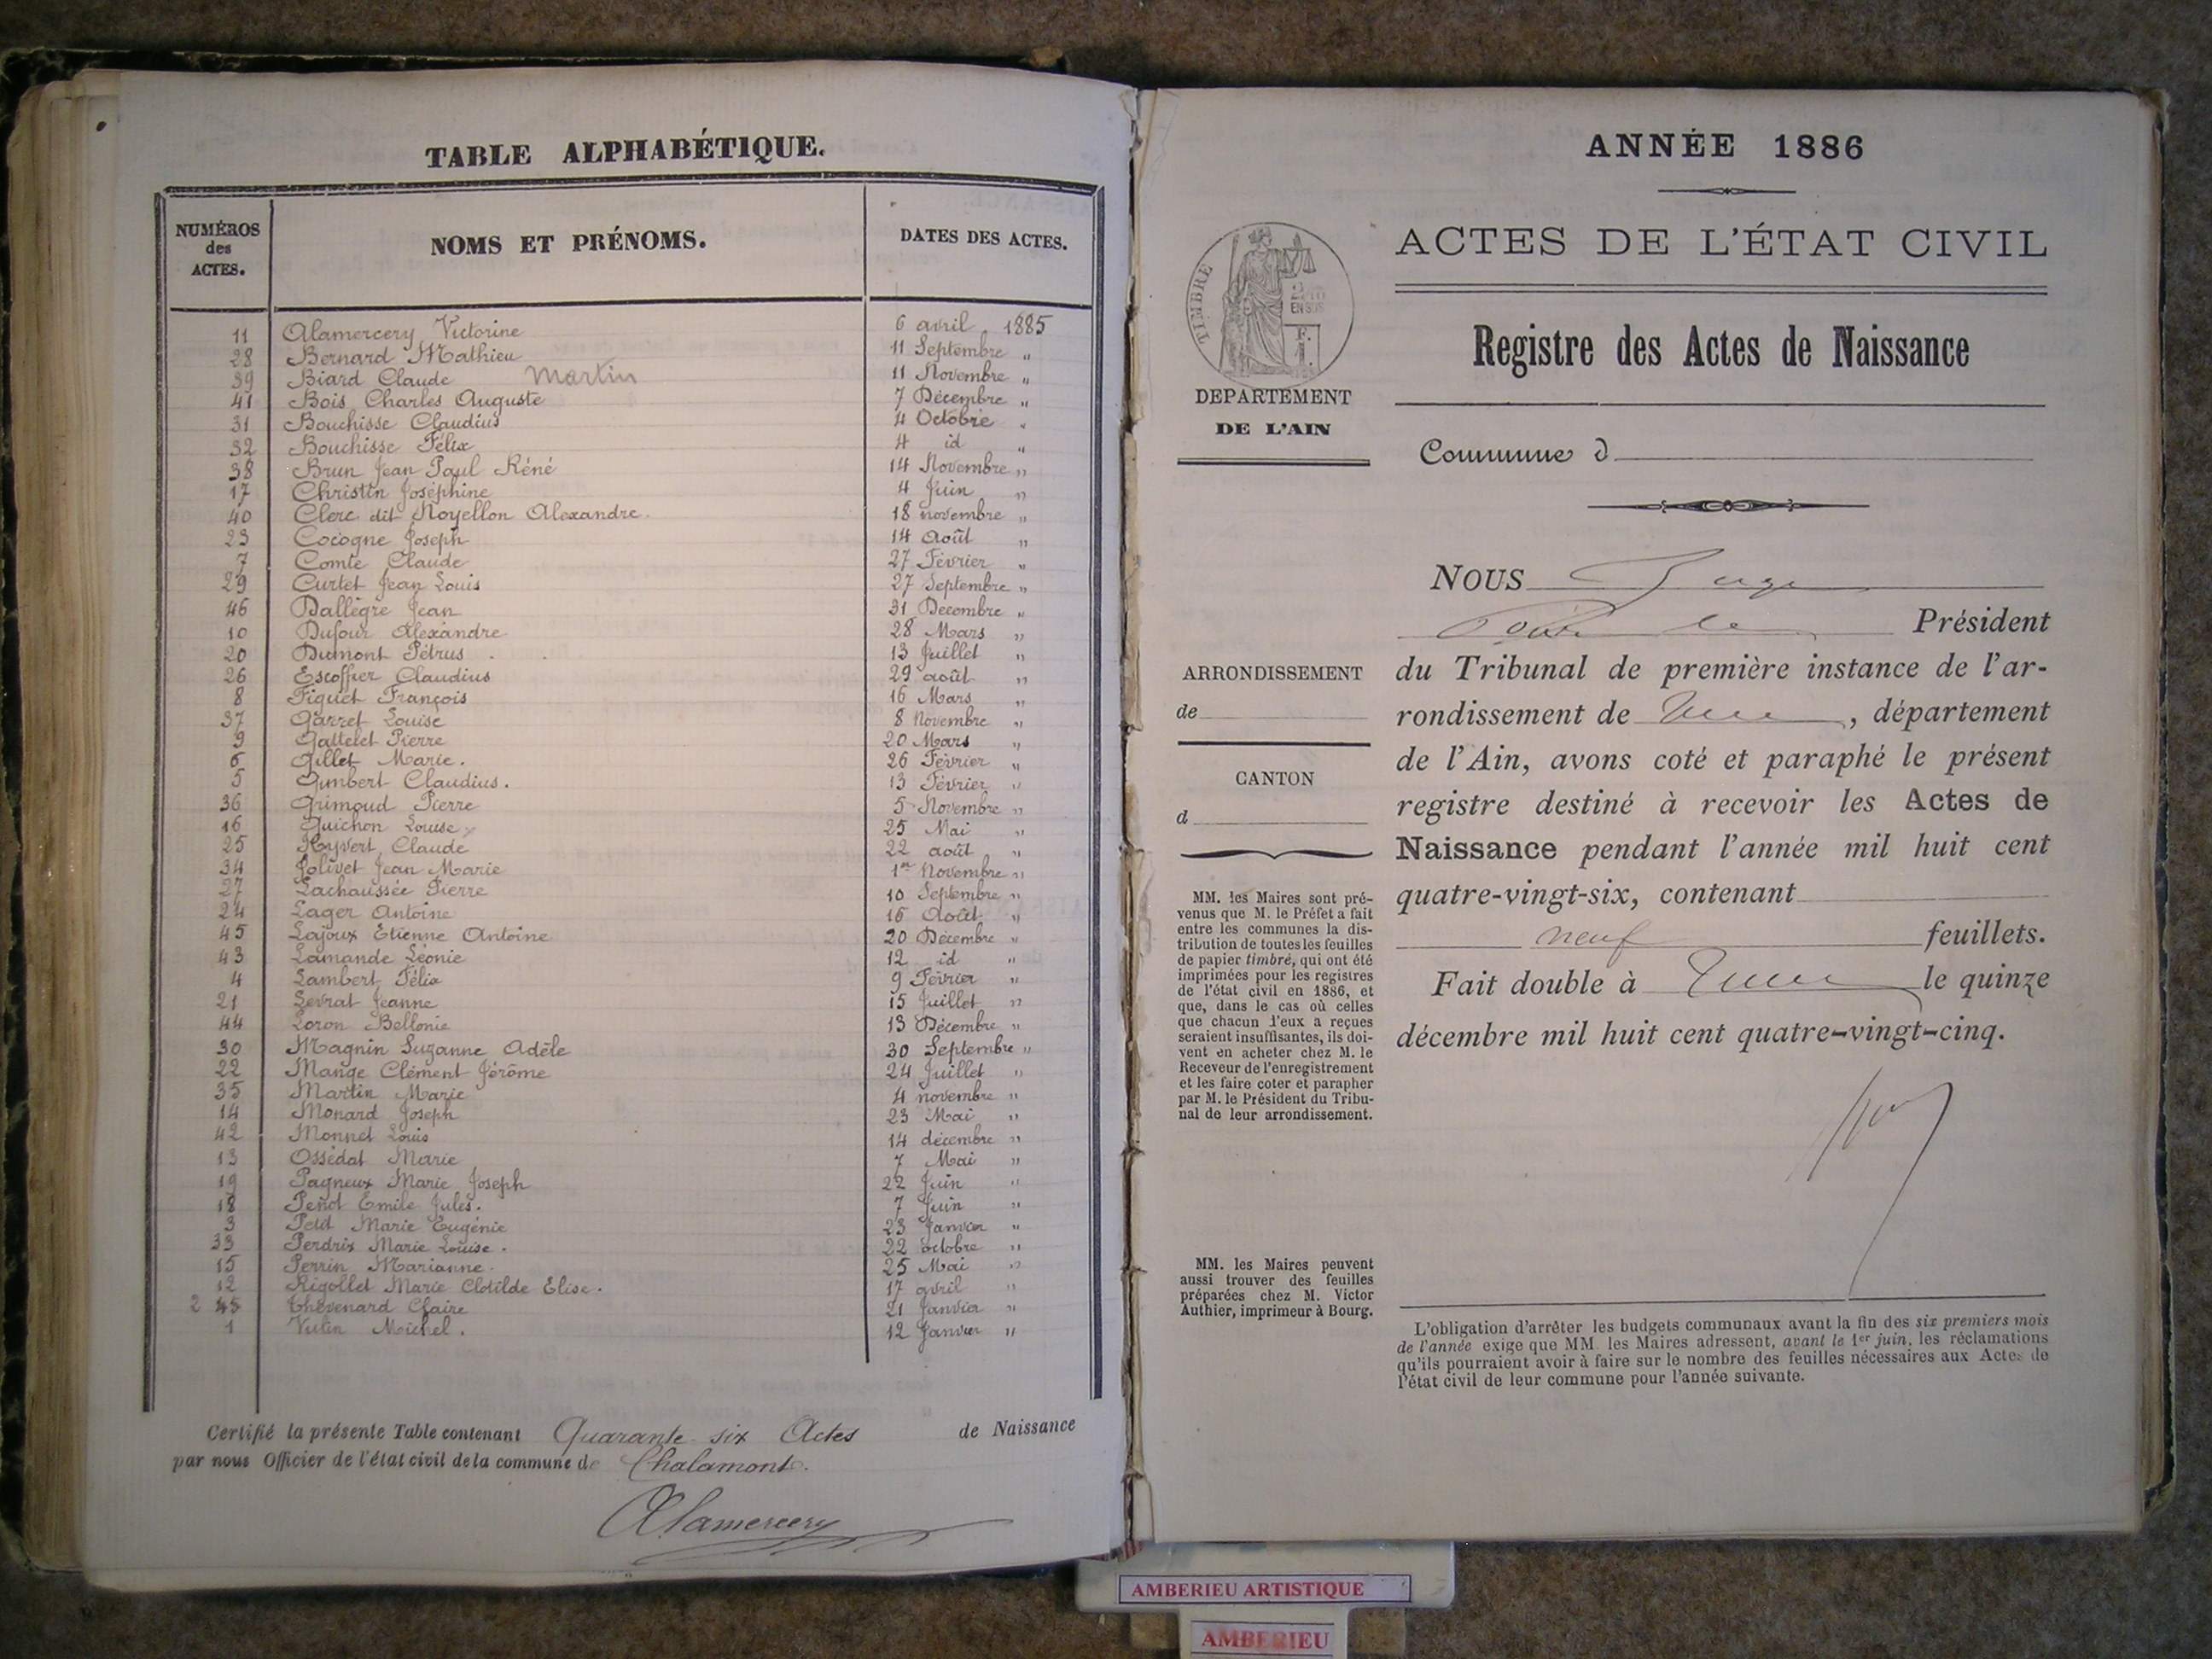 TABLE ALPHABÉTIQUE.
NUMÉROS des ACTES. NOMS ET PRÉNOMS. DATES DES ACTES.
11 Alamercery Victorine 6 avril 1885
28 Bernard Mathieu 11 Septembre "
39 Biard Claude Martin 11 Novembre "
41 Bois Charles Auguste 7 Décembre "
31 Bouchisse Claudius 4 Octobre "
32 Bouchisse Félix 4 id "
38 Brun Jean Paul Réné 14 Novembre "
17 Christin Joséphine 4 Juin "
40 Clerc dit Noyellon Alexandre. 18 novembre "
23 Cocogne Joseph 14 Août "
7 Comte Claude 27 Février "
29 Curtet Jean Louis 27 Septembre "
46 Dallègre Jean 31 Decembre "
10 Dufour Alexandre 28 Mars "
20 Dumont Pétrus 13 Juillet "
26 Escoffier Claudius 29 août "
8 Figuet François 16 Mars "
37 Garret Louise 8 Novembre "
9 Gattelet Pierre 20 Mars "
6 Gillet Marie. 26 Février "
5 Gimbert Claudius. 13 Février "
36 Grimoud Pierre 5 Novembre "
16 Guichon Louise 25 Mai "
25 Hyvert Claude 22 août "
34 Jolivet Jean Marie 1er Novembre "
27 Lachaussée Pierre 10 Septembre "
24 Lager Antoine 16 Août "
45 Lajoux Etienne Antoine 20 Décembre "
43 Lamande Léonie 12 id "
4 Lambert Félix 9 Février "
21 Levrat Jeanne 15 Juillet "
44 Loron Bellonie 13 Décembre "
30 Magnin Suzanne Adèle 30 Septembre "
22 Mange Clément Jérôme 24 Juillet "
35 Martin Marie 4 novembre "
14 Monard Joseph 23 Mai "
42 Monnet Louis 14 décembre "
13 Ossédat Marie 7 Mai "
19 Pagneux Marie Joseph 22 Juin "
18 Penot Emile Jules. 7 Juin "
3 Petit Marie Eugénie 23 Janvier "
33 Perdrix Marie Louise. 22 octobre "
15 Perrin Marianne. 25 Mai "
12 Rigollet Marie Clotilde Elise. 17 avril "
2 45 Thévenard Claire 21 Janvier "
1 Vulin Michel. 12 Janvier "
Certifié la présente Table contenant Quarante six Actes de Naissance
par nous Officier de l'état civil de la commune de Chalamont.
Alamercery
ANNÉE 1886
ACTES DE L'ÉTAT CIVIL
Registre des Actes de Naissance
TIMBRE
EN SUS
DEPARTEMENT
DE L'AIN
Commune d
NOUS Juge
Président
ARRONDISSEMENT
de
CANTON
d
du Tribunal de première instance de l'ar-
rondissement de , département
de l'Ain, avons coté et paraphé le présent
registre destiné à recevoir les Actes de
Naissance pendant l'année mil huit cent
quatre-vingt-six, contenant
neuf feuillets.
Fait double à le quinze
décembre mil huit cent quatre-vingt-cinq.
MM. les Maires sont pré-
venus que M. le Préfet a fait
entre les communes la dis-
tribution de toutes les feuilles
de papier timbré, qui ont été
imprimées pour les registres
de l'état civil en 1886, et
que, dans le cas où celles
que chacun d'eux a reçues
seraient insuffisantes, ils doi-
vent en acheter chez M. le
Receveur de l'enregistrement
et les faire coter et parapher
par M. le Président du Tribu-
nal de leur arrondissement.
MM. les Maires peuvent
aussi trouver des feuilles
préparées chez M. Victor
Authier, imprimeur à Bourg.
L'obligation d'arrêter les budgets communaux avant la fin des six premiers mois
de l'année exige que MM. les Maires adressent, avant le 1er juin, les réclamations
qu'ils pourraient avoir à faire sur le nombre des feuilles nécessaires aux Actes de
l'état civil de leur commune pour l'année suivante.
AMBERIEU ARTISTIQUE
AMBERIEU